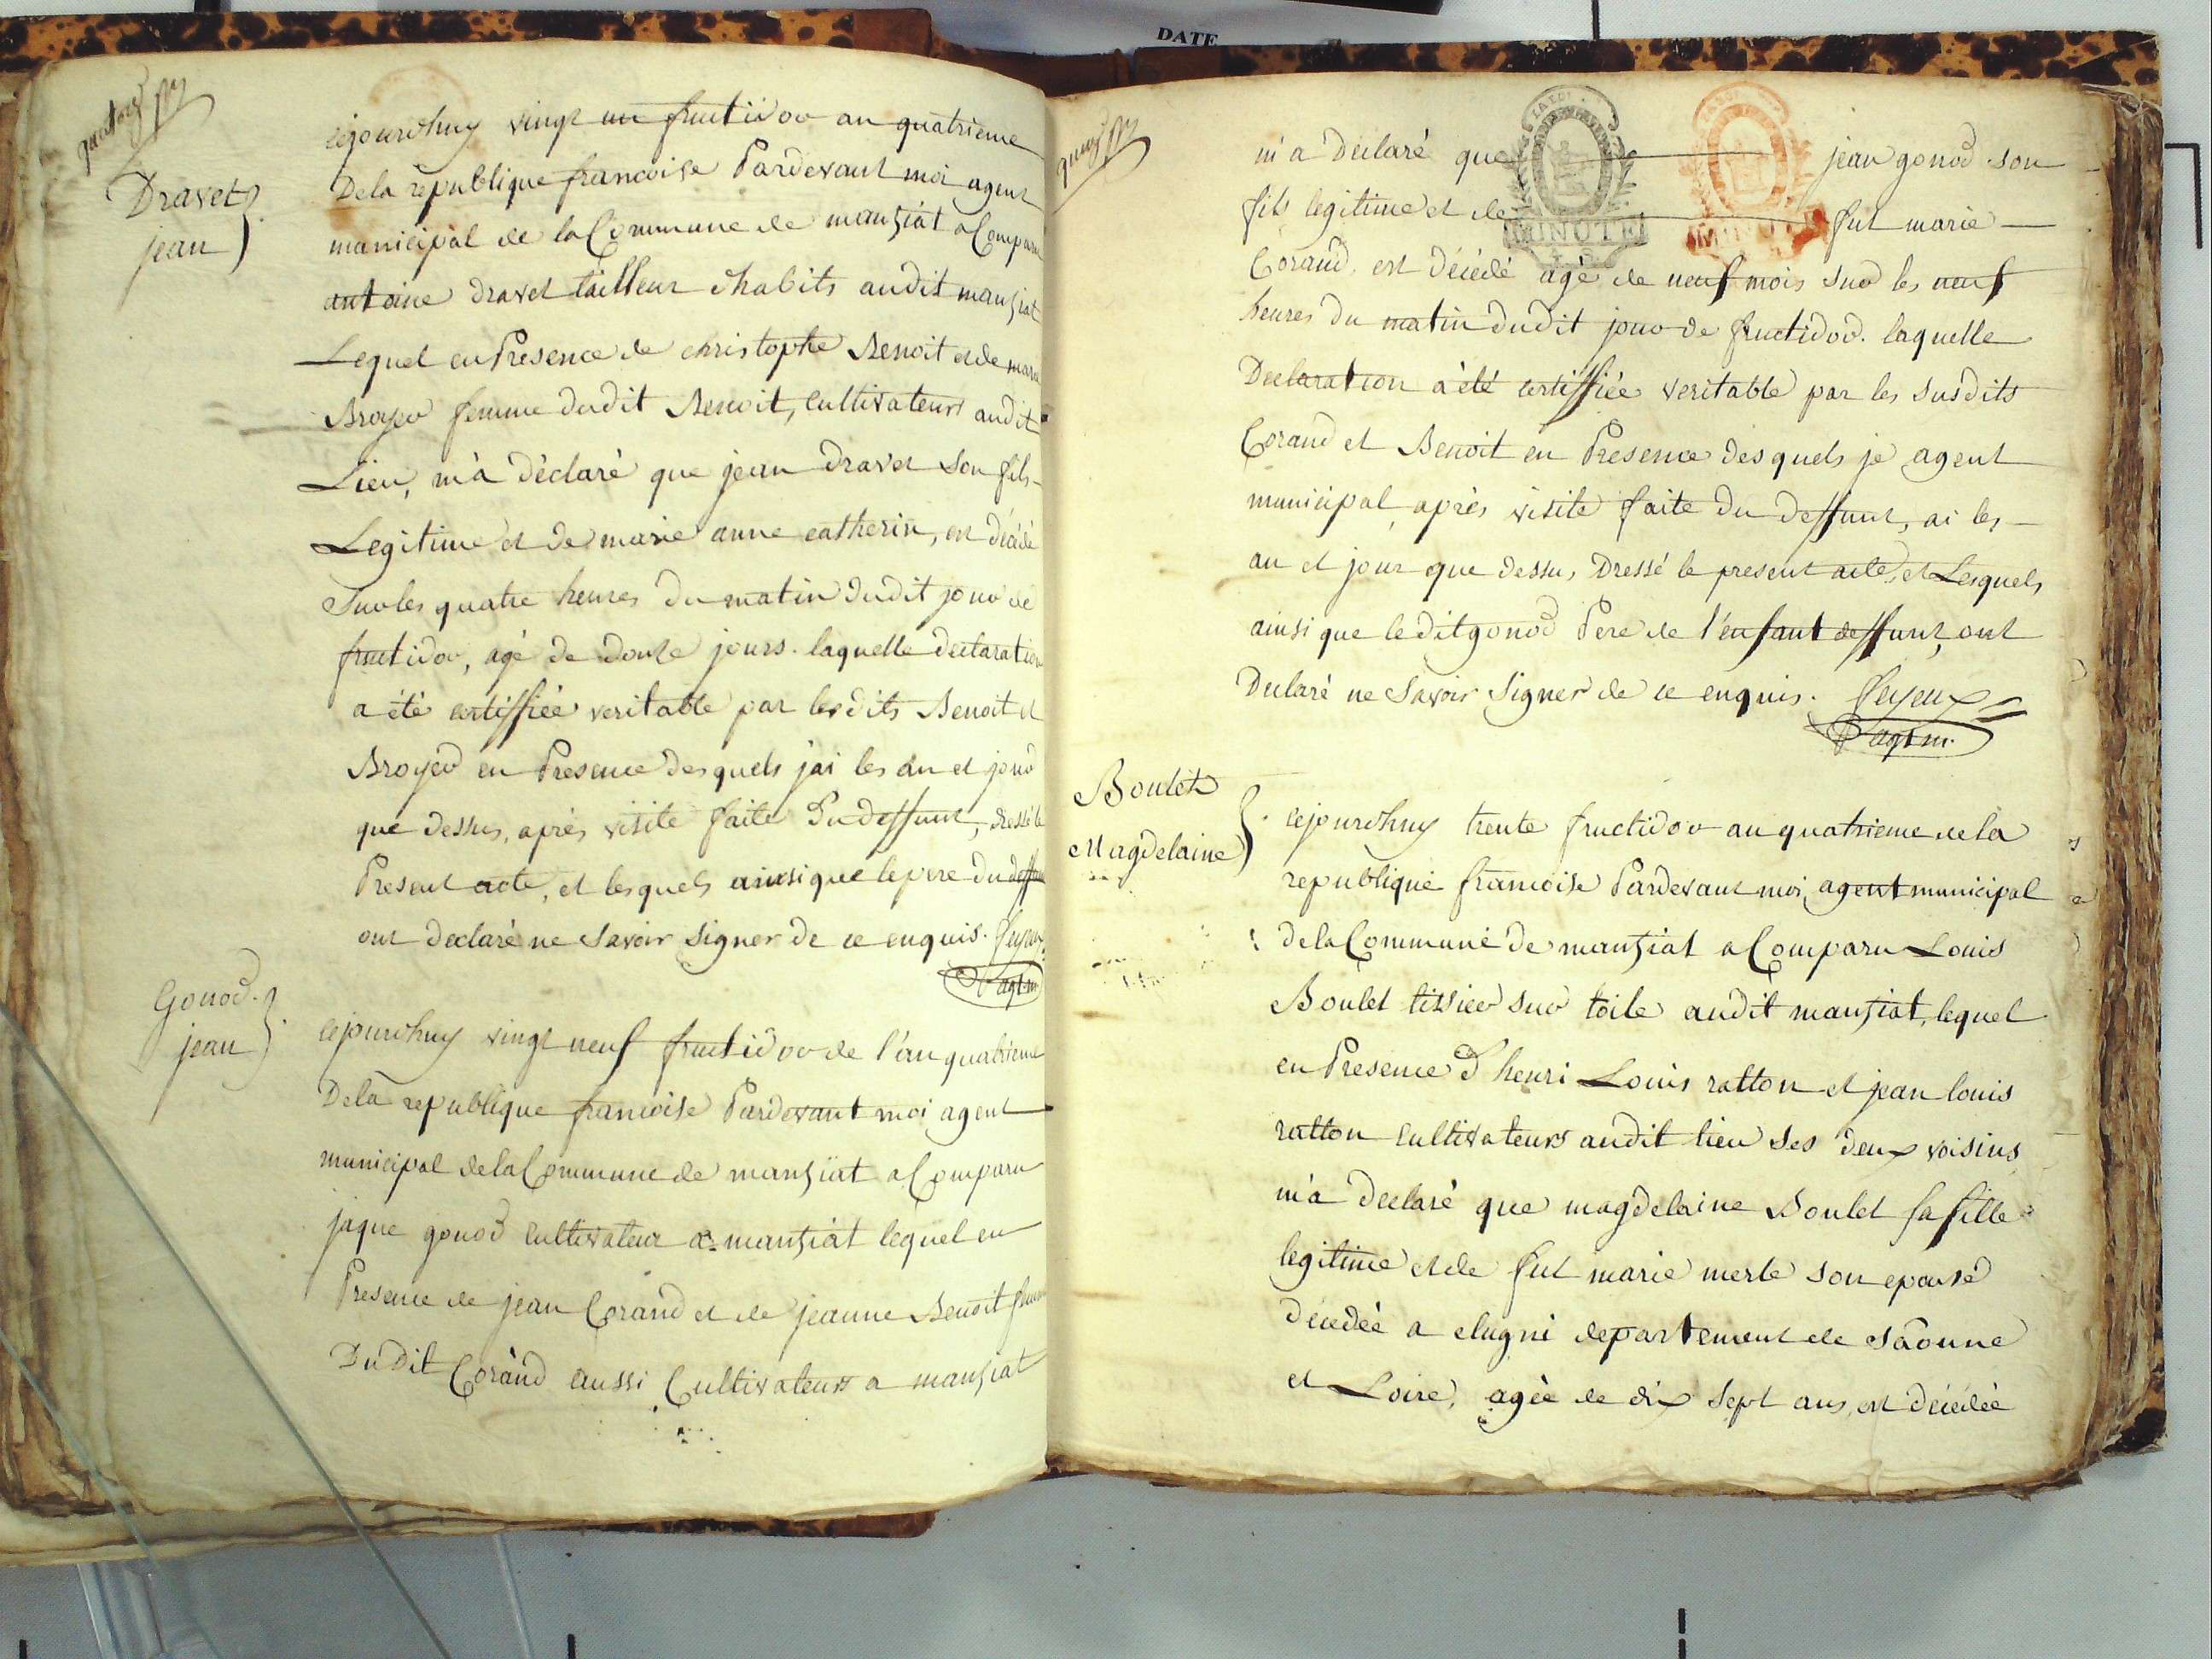 DATE
Dravet
jean
cejourdhuy vingt un fructidor an quatrieme
Dela republique francoise Pardevant moi agent
municipal de la Commune de manziat a Comparu
antoine dravet tailleur dhabits audit manziat
Lequel en Presence de christophe Benoit et de marie
Broyer femme dudit Benoit, Cultivateurs audit
Lieu, m'a déclaré que jean dravet son fils
Legitime et de marie anne catherin, est décédé
Sur les quatre heures du matin dudit jour de
fructidor, agé de douze jours. laquelle declaration
a été certiffiée veritable par lesdits Benoit et
Broyer en Presence desquels j'ai les an et jour
que dessus, après visite faite Du deffunt, dressé le
Present acte, et lesquels ainsi que le pere du deffunt
ont declaré ne Savoir Signer de ce enquis. Feyeux
agt. m.
Gonod.
jean
cejourdhuy vingt neuf fructidor de l'an quatrieme
Dela republique francoise Pardevant moi agent
municipal dela Commune de manziat a Comparu
jaque gonod Cultivateur a manziat lequel en
Presence de jean Corand et de jeanne Benoit femme
Dudit Corand aussi Cultivateurs a manziat
m'a declaré que jean gonod son
fils legitime et de fut marie
Corand, est décédé agé de neuf mois sur les neuf
heures du matin dudit jour de fructidor. laquelle
Declaration a été certiffiée veritable par les susdits
Corand et Benoit en Presence desquels je agent
municipal, après visite faite du deffunt, ai les
an et jour que dessus, Dressé le present acte, et Lesquels
ainsi que le dit gonod Pere de l'enfant deffunt, ont
Declaré ne Savoir Signer de ce enquis. Feyeux
agt. m.
MINUTE
Boulet
Magdelaine
cejourdhuy trente fructidor an quatrieme de la
republique francoise Pardevant moi agent municipal
dela Commune de manziat a Comparu Louis
Boulet tissier sur toile audit manziat, lequel
en Presence d'henri Louis ratton et jean louis
ratton Cultivateurs audit lieu ses deux voisins
m'a declaré que magdelaine Boulet sa fille
legitime et de fut marie merle son epouse
décédée a clugni departement de Sâonne
et Loire, agée de dix sept ans, est décédée